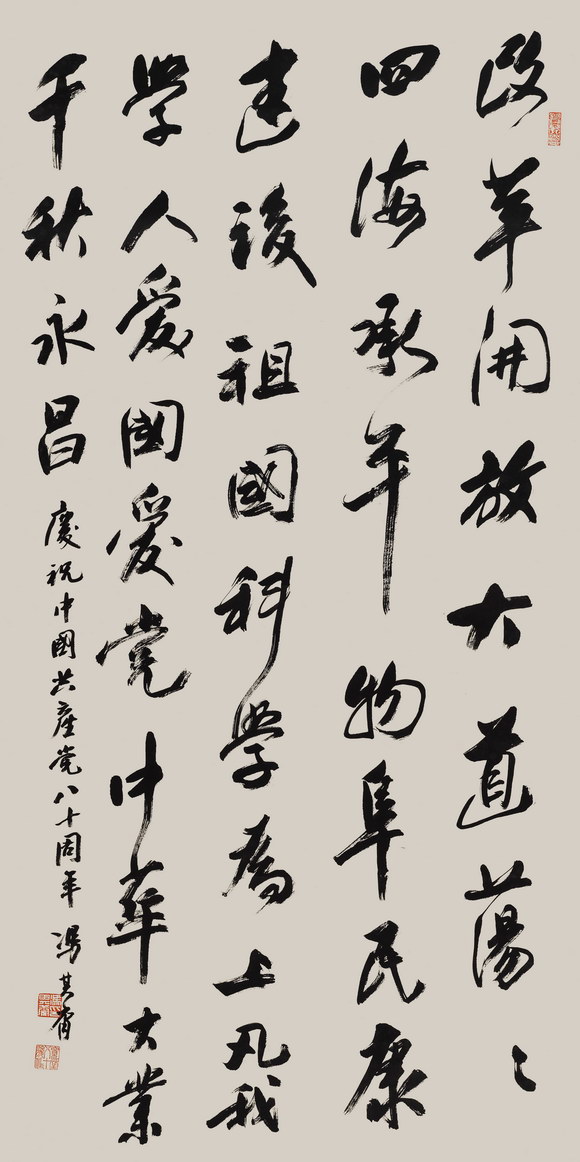 改革開放大道蕩〻
四海承平物阜民康
建設祖國科學為上凡我
學人愛國愛党中華大業
千秋永昌 慶祝中國共產党八十周年 馮其庸